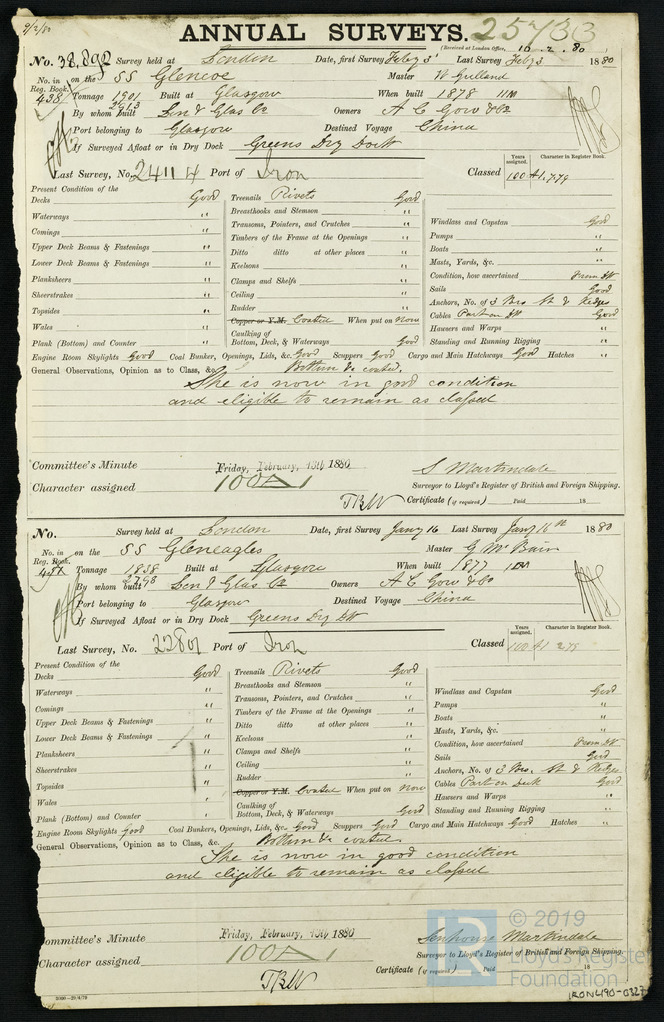 9/2/80
ANNUAL SURVEYS. 25
(Received at London Office, 10.2.80)
No. 38,892 Survey held at London Date, first Survey Feby 3 Last Survey Feby 3 1880
No. in Reg. Book. 438 on the SS Glencoe Master W Gulland
Tonnage 1901 2913 Built at Glasgow When built 1878 11M
By whom built Lon & Glas Co Owners A C Gow & Co
Port belonging to Glasgow Destined Voyage China
If Surveyed Afloat or in Dry Dock Greens Dry Dock
Last Survey, No. 24114 Port of Iron Classed
Years assigned. Character in Register Book.
100 A1. 7.79
Present Condition of the
Decks Good
Waterways "
Comings "
Upper Deck Beams & Fastenings "
Lower Deck Beams & Fastenings "
Planksheers "
Sheerstrakes "
Topsides "
Wales "
Plank (Bottom) and Counter "
Treenails Rivets Good
Breasthooks and Stemson "
Transoms, Pointers, and Crutches "
Timbers of the Frame at the Openings "
Ditto ditto at other places "
Keelsons "
Clamps and Shelfs "
Ceiling "
Rudder "
Copper or Y.M. Coated When put on Now
Caulking of
Bottom, Deck, & Waterways Good
Windlass and Capstan Good
Pumps "
Boats "
Masts, Yards, &c. "
Condition, how ascertained From DK
Sails Good
Anchors, No. of 3 Brs St & Kedges
Cables Part on DK Good
Hawsers and Warps "
Standing and Running Rigging "
Engine Room Skylights Good Coal Bunker, Openings, Lids, &c. Good Scuppers Good Cargo and Main Hatchways Good Hatches "
General Observations, Opinion as to Class, &c. Bottom &c coated.
She is now in good condition
and eligible to remain as classed
Committee's Minute Friday, February, 13th 1880
Character assigned 100A1
S Martindale
Surveyor to Lloyd's Register of British and Foreign Shipping.
Certificate (if required) Paid 18
No. Survey held at London Date, first Survey Jany 16 Last Survey Jany 16th 1880
No. in Reg. Book. on the SS Gleneagles Master G McBain
Tonnage 1838 2798 Built at Glasgow When built 1877
By whom built Lon & Glas Co Owners A C Gow & Co
Port belonging to Glasgow Destined Voyage China
If Surveyed Afloat or in Dry Dock Greens Dry DK
Last Survey, No. 22801 Port of Iron Classed
Years assigned. Character in Register Book.
100 A1 2 79
Present Condition of the
Decks Good
Waterways "
Comings "
Upper Deck Beams & Fastenings "
Lower Deck Beams & Fastenings "
Planksheers "
Sheerstrakes "
Topsides "
Wales "
Plank (Bottom) and Counter "
Treenails Rivets Good
Breasthooks and Stemson "
Transoms, Pointers, and Crutches "
Timbers of the Frame at the Openings "
Ditto ditto at other places "
Keelsons "
Clamps and Shelfs "
Ceiling "
Rudder "
Copper or Y.M. Coated When put on Now
Caulking of
Bottom, Deck, & Waterways Good
Windlass and Capstan Good
Pumps "
Boats "
Masts, Yards, &c. "
Condition, how ascertained From DK
Sails Good
Anchors, No. of 3 Brs. St & Kedges
Cables Part on Deck Good
Hawsers and Warps "
Standing and Running Rigging "
Engine Room Skylights Good Coal Bunkers, Openings, Lids, &c. Good Scuppers Good Cargo and Main Hatchways Good Hatches "
General Observations, Opinion as to Class, &c. Bottom &c coated
She is now in good condition
and eligible to remain as classed
ommittee's Minute Friday, February, 13th 1880
Character assigned 100A1
Senhouse Martindale
Surveyor to Lloyd's Register of British and Foreign Shipping.
Certificate (if required) Paid 18
© 2019
Lloyd's Register
Foundation
IRON490-0327